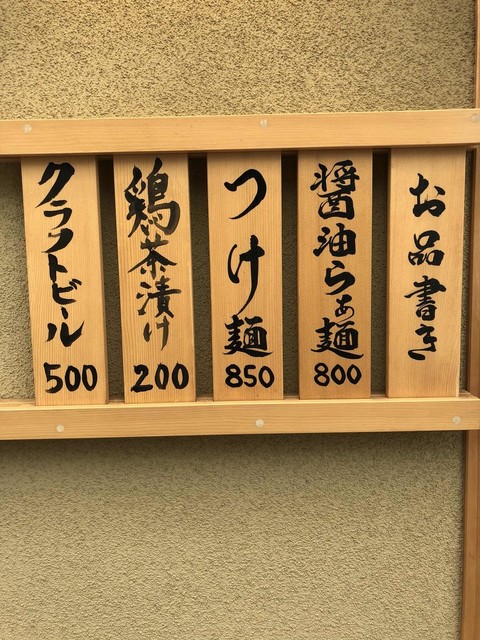 お品書き
醤油らぁ麺
800
つけ麺
850
鶏茶漬け
200
クラフトビール
500